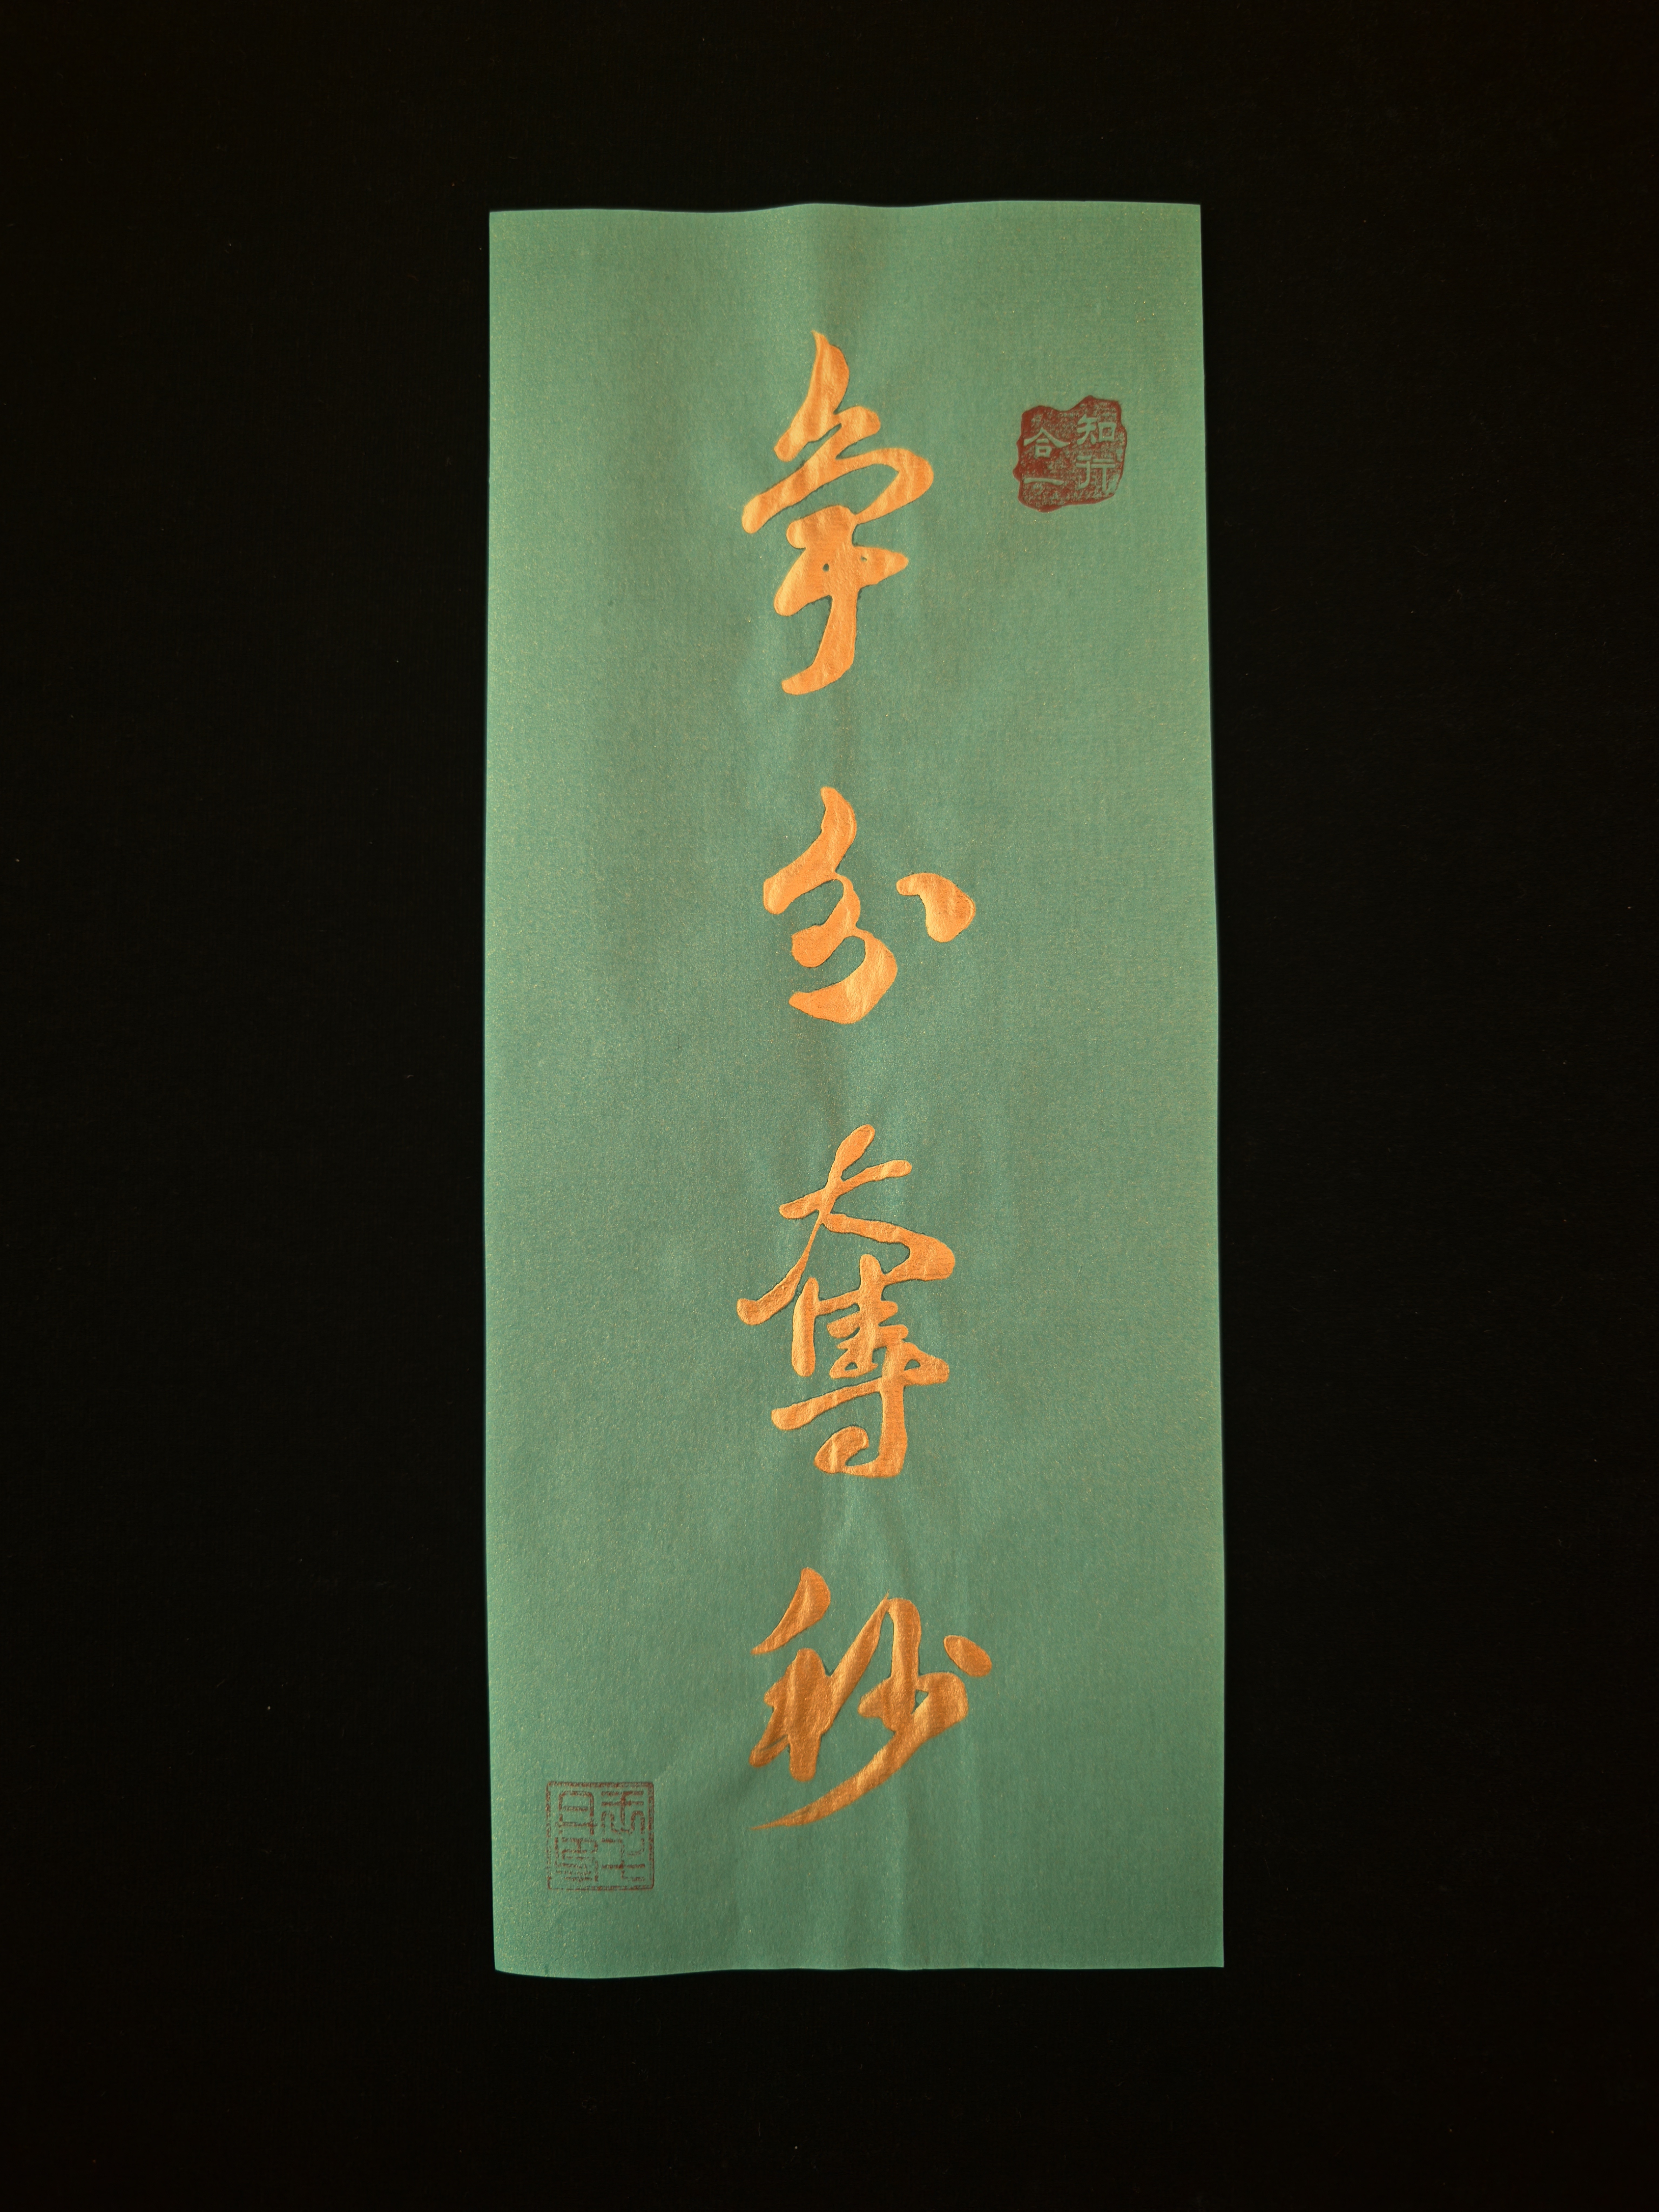 知行
合一
争分夺秒